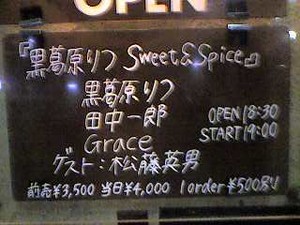 OPEN
『黒葛原りつ Sweet&Spice』
黒葛原りつ
田中一郎
OPEN 18:30
Grace
START 19:00
ゲスト:松藤英男
前売¥3,500 当日¥4,000 1order ¥500より